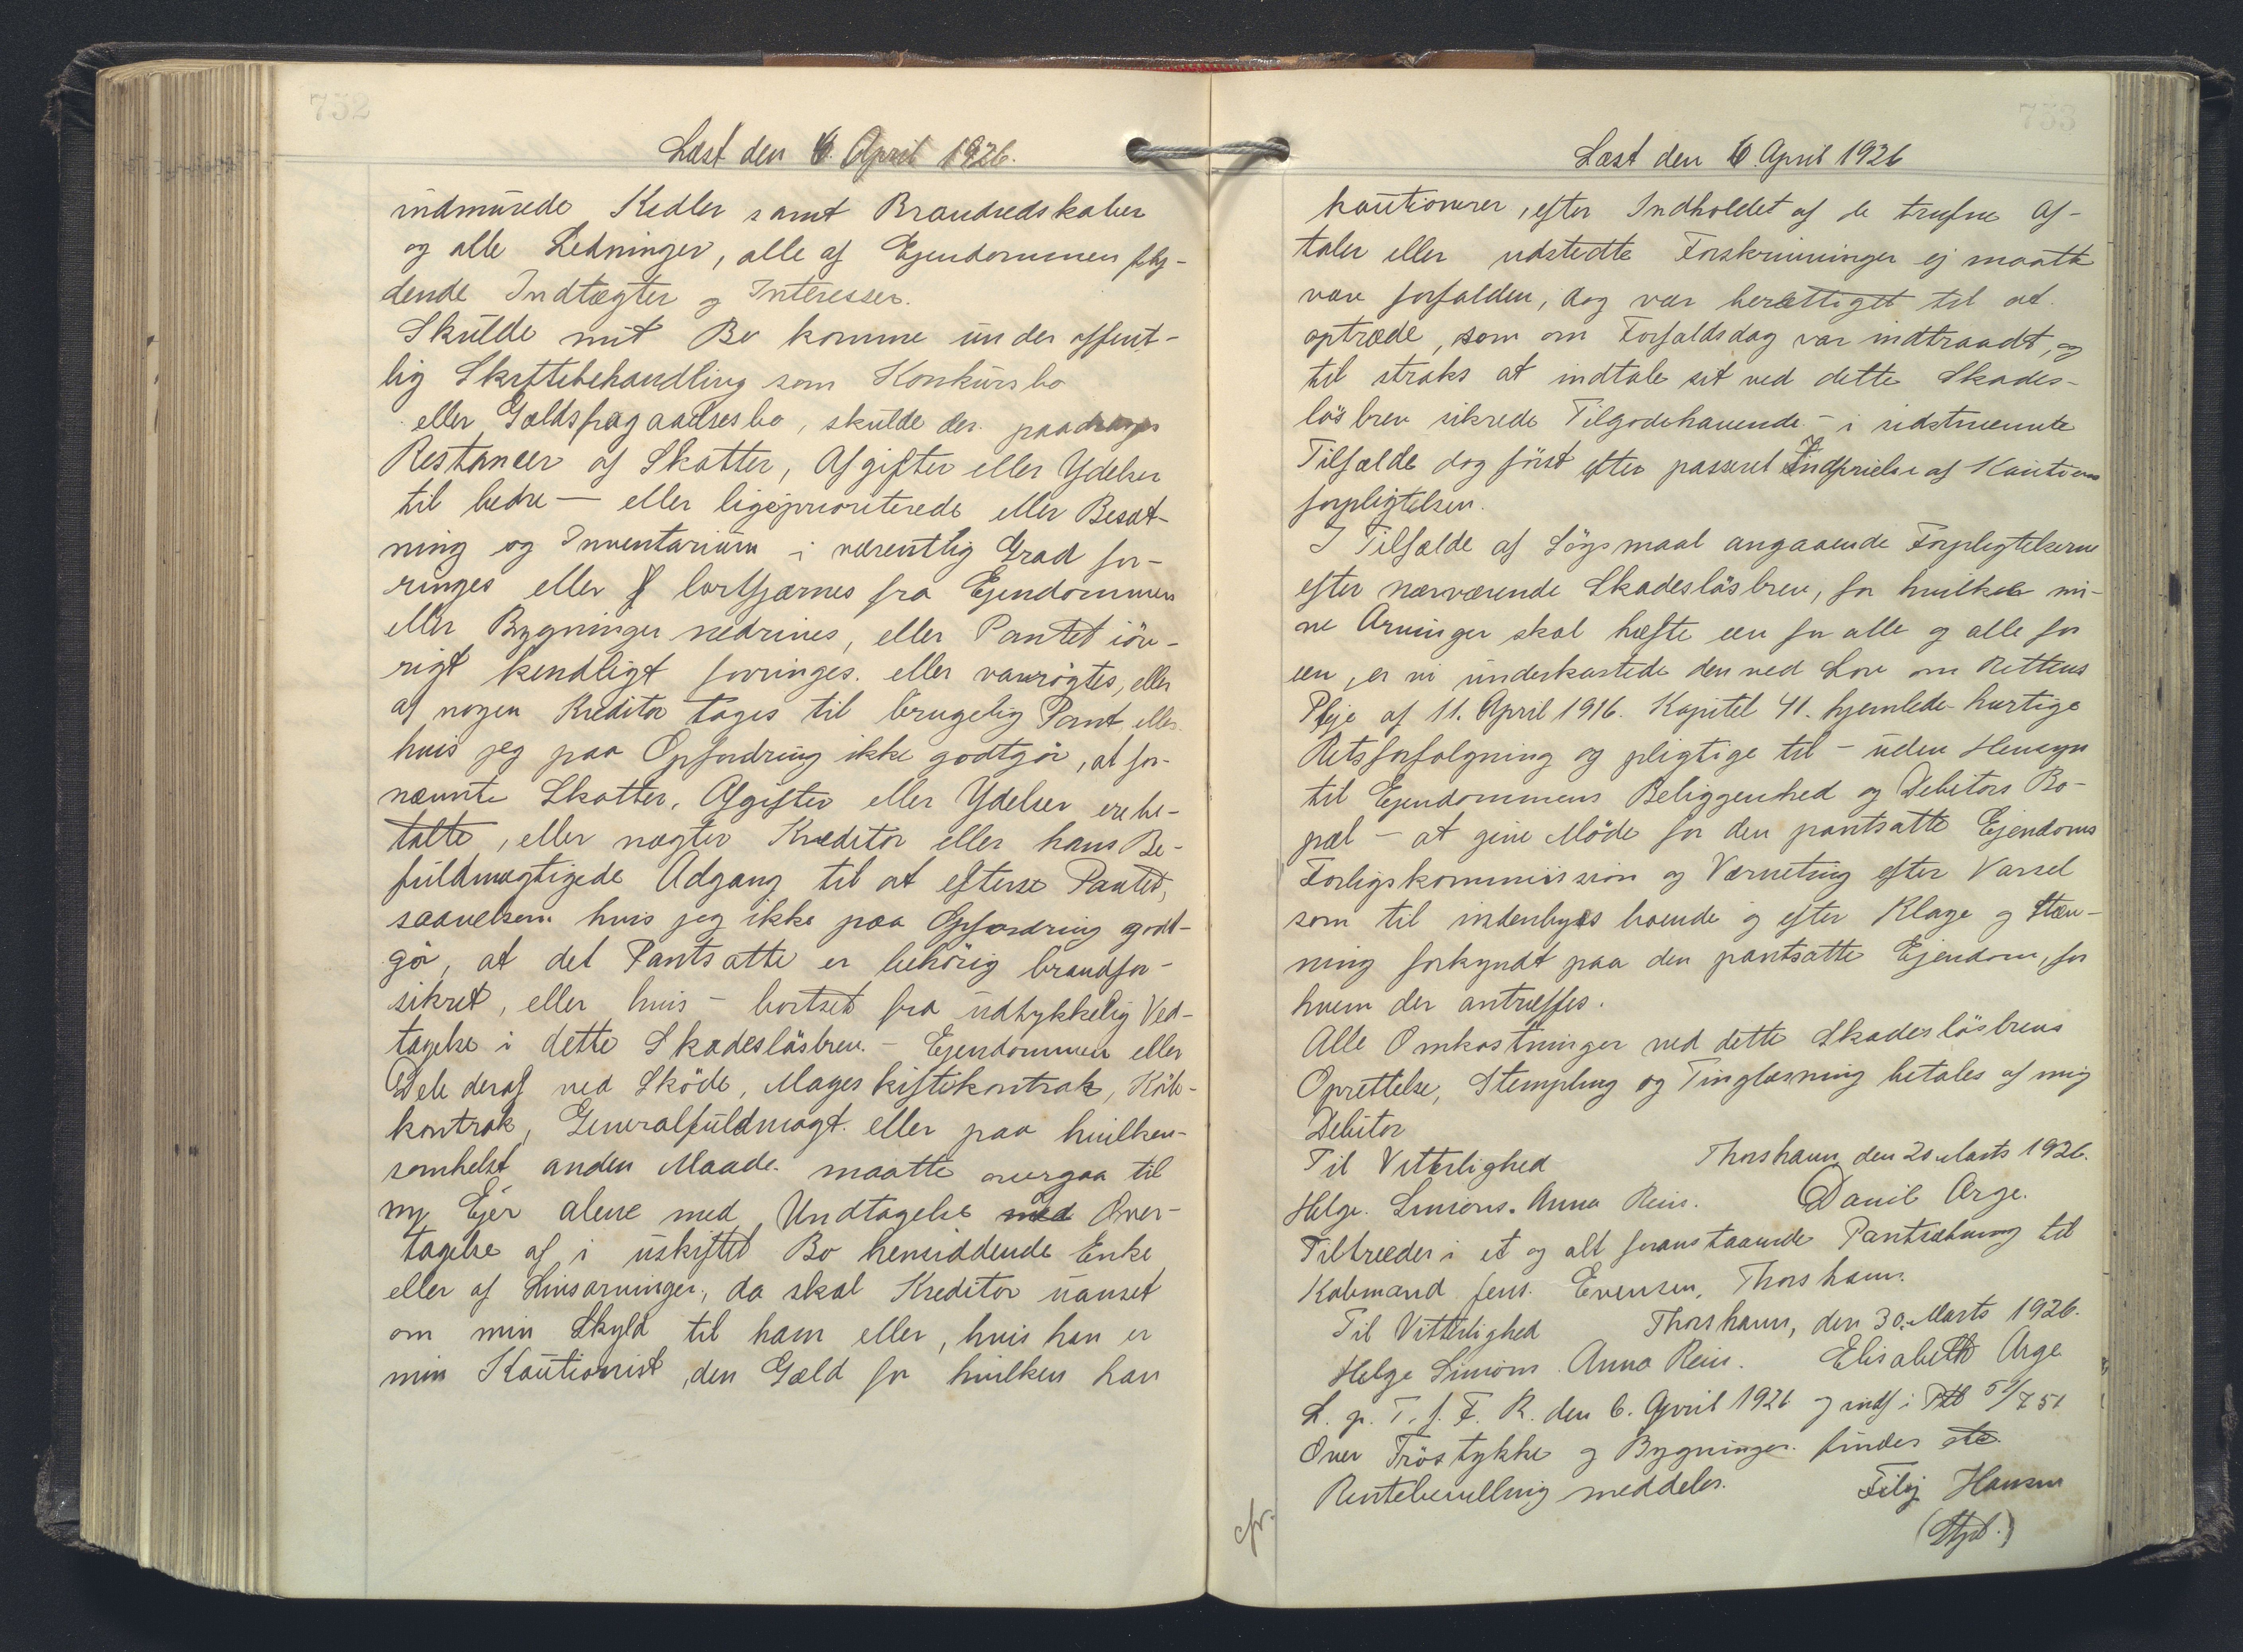 752
Læst den 6. April 1926.
indmurede Kedler samt Brandredskaber
og alle Ledninger, alle af Ejendommen fly-
dende Indtægter og Interesser.
Skulde mit Bo komme under offent-
lig Skiftebehandling som Konkursbo
eller Gældsfragaaelsesbo, skulde der paadrages
Restancer af Skatter, Afgifter eller Ydelser
til bedre — eller ligeprioriterede eller Besæt-
ning og Inventarium i væsentlig Grad for-
ringes eller bortfjærnes fra Ejendommen
eller Bygninger nedrives, eller Pantet iöv-
rigt kendligt forringes. eller vanrögtes, eller
af nogen Kreditor tages til brugelig Pant, eller
hvis jeg paa Opfordring ikke godtgör, at for-
nævnte Skatter, Afgifter eller Ydelser ere be-
talte, eller nægter Kreditor eller hans Be-
fuldmægtigede Adgang til at efterse Pantet,
saavelsom hvis jeg ikke paa Opfordring godt-
gör, at det Pantsatte er behörig brandfor-
sikret, eller hvis – bortset fra udtykkelig Ved-
tagelse i dette Skadeslösbrev. – Ejendommen eller
Dele deraf ved Sköde, Mageskiftekontrak, Köbe-
kontrak, Generalfuldmagt. eller paa hvilken-
somhelst anden Maade. maatte overgaa til
ny Ejer alene med Undtagelse med Over-
tagelse af i uskiftet Bo hensiddende Enke
eller af Livsarvinger, da skal Kreditor uanset
om min Skyld til ham eller, hvis han er
min Kautionist, den Gæld for hvilken han
753
Læst den 6 April 1926
kautionerer, efter Indholdet af de trufne Af-
taler eller udstedte Forskrivninger ej maatte
være forfalden, dog være berettiget til at
optræde, som om Forfaldsdag var indtraadt, og
til straks at indtale sit ved dette Skades-
lösbrev sikrede Tilgodehavende – i sidstnævnte
Tilfælde dog först efter passeret Indfrielse af Kautions
forpligtelsen.
I Tilfælde af Sögsmaal angaaende Forpligtelserne
efter nærværende Skadeslösbrev, for hvilket mi-
ne Arvinger skal hæfte een for alle og alle for
een, er vi underkastede den ved Lov om Rettens
Pleje af 11. April 1916. Kapitel 41. hjemlede hurtige
Retsforfølgning og pligtige til – uden Hensyn
til Ejendommens Beliggenhed og Debitors Bo-
pæl – at give Möde for den pantsatte Ejendoms
Forligskommission og Værneting efter Varsel
som til indenbyes boende og efter Klage og Stæv-
ning forkyndt paa den pantsatte Ejendom, for
hvem der antræffes.
Alle Omkostninger ved dette Skadeslösbrevs
Oprettelse, Stempling og Tinglæsning betales af mig
Debitor
Til Vitterlighed Thorshavn, den 20 Marts 1926.
Helge. Simons. Anna Rein. Danil Arge.
Tiltræder i et og alt foranstaaende Pantsætning til
Købmand Jens. Evensen, Thorshavn.
Til Vitterlighed Thorshavn, den 30. Marts 1926.
Helge Simons. Anna Rein. Elisabeth Arge
L. p. T. f. F. R. den 6. April 1926 og indf i Ptb 5/751
Over Tröstykke og Bygninger findes
Rentebevilling meddeles. Filip Hansen
cfr.